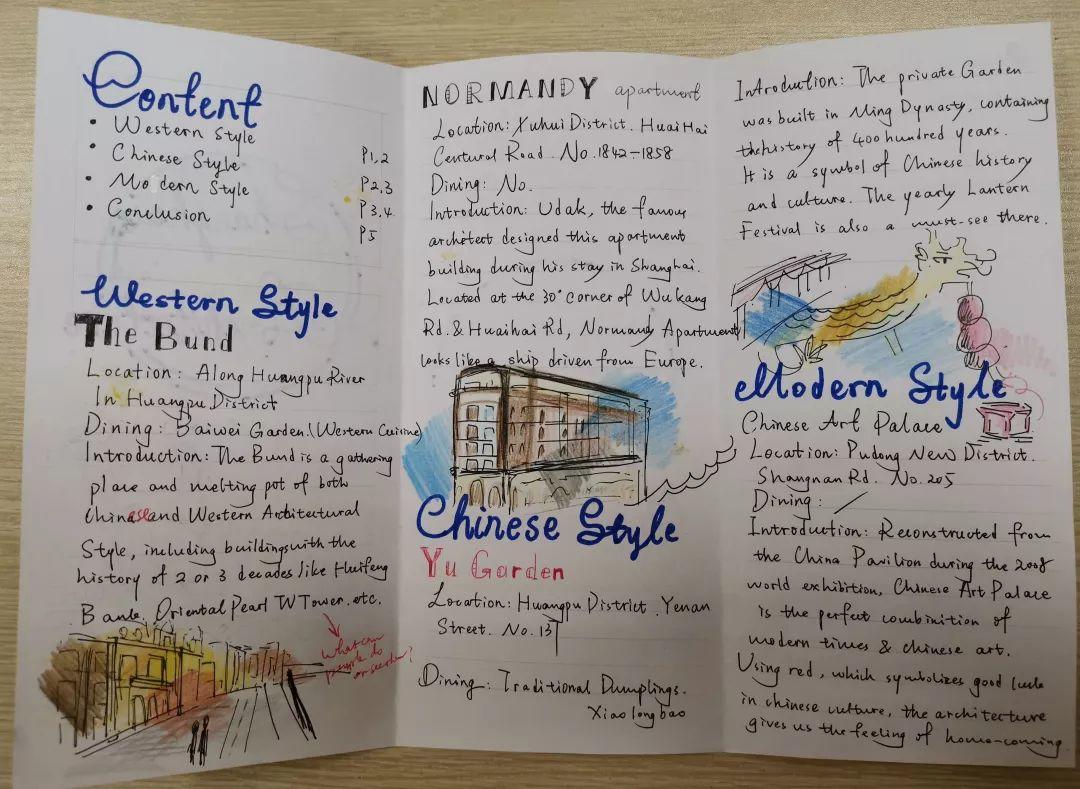 Content
• Western Style
• Chinese Style P1,2
• Modern Style P2.3
• Conclusion P3,4.
P5
Western Style
The Bund
Location: Along Huangpu River
In Huangpu District
Dining: Baiwei Garden. (Western Cuisine)
Introduction: The Bund is a gathering
place and melting pot of both
Chinese and Western Architectural
Style, including buildings with the
history of 2 or 3 decades like Huifeng
Bank, Oriental Pearl TV Tower, etc.
what can
people do
NORMANDY apartment
Location: Xuhui District. HuaiHai
Centural Road. No.1842-1858
Dining: No.
Introduction: Udak, the famous
architect designed this apartment
building during his stay in Shanghai.
Located at the 30° corner of Wukang
Rd. & Huaihai Rd, Normandy Apartment
looks like a ship driven from Europe.
Chinese Style
Yu Garden
Location: Huangpu District. Yenan
Street. No. 137
Dining: Traditional Dumplings.
Xiaolongbao
Introduction: The private Garden
was built in Ming Dynasty, containing
the history of 400 hundred years.
It is a symbol of Chinese history
and culture. The yearly Lantern
Festival is also a must-see there.
Modern Style
Chinese Art Palace
Location: Pudong New District.
Shangnan Rd. No. 205
Dining: /
Introduction: Reconstructed from
the China Pavilion during the 2008
world exhibition, Chinese Art Palace
is the perfect combinition of
modern times & chinese art.
Using red, which symbolizes good luck
in chinese culture, the architecture
gives us the feeling of home-coming.